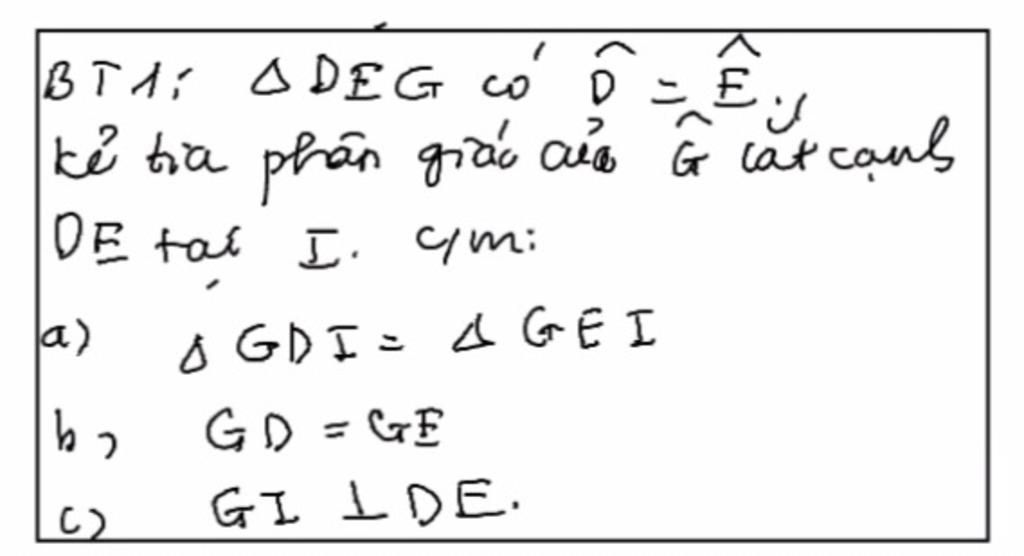 BT1: Δ DEG có D̂ = Ê.
kẻ tia phân giác của Ĝ cắt cạnh
DE tại I. c/m:
a) Δ GDI = Δ GEI
b, GD = GE
c) GI ⊥ DE.